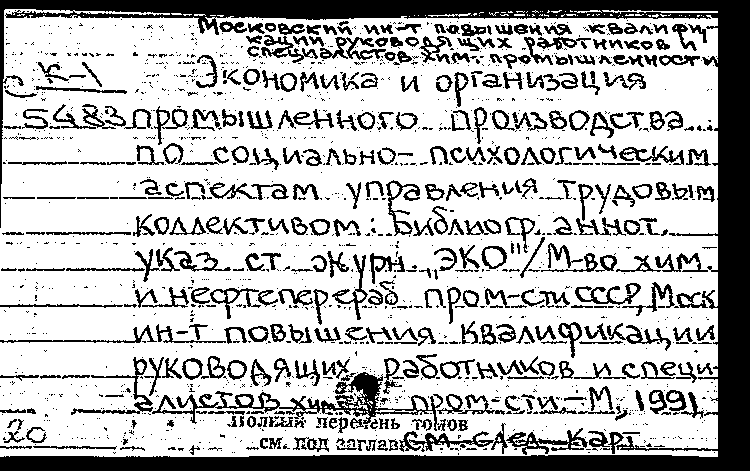 Московский ин-т повышения квалифи-
кации руководящих работников и
специалистов хим. промышленности
К-1 Экономика и организация
5483 промышленного производства...
по социально-психологическим
аспектам управления трудовым
коллективом: Библиогр. аннот.
указ. ст. журн. „ЭКО"/М-во хим.
и нефтеперераб. пром-сти СССР, Моск.
ин-т повышения квалификации
руководящих работников и специ-
алистов хим. пром-сти.-М., 1991
Полный перечень томов
20 см. под заглав см. след. карт.